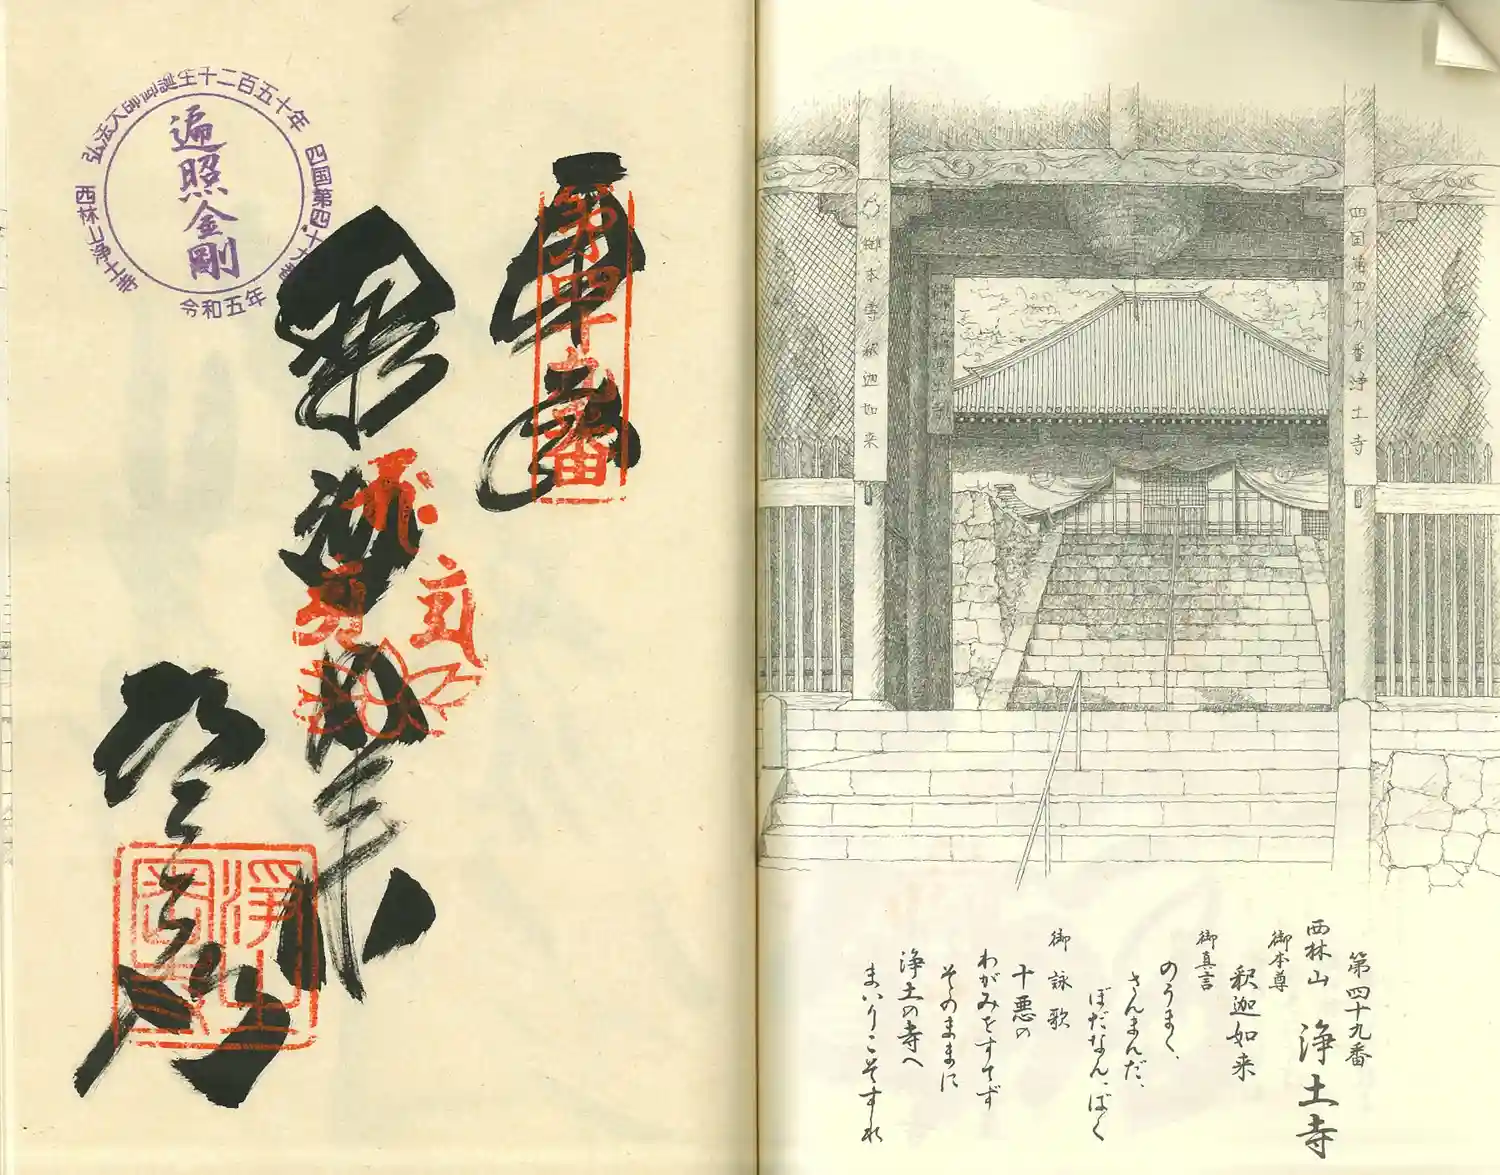 弘法大師御誕生千二百五十年
四国第四十九番
西林山浄土寺
令和五年
遍照金剛
奉
第四十九番
釈迦如来
浄土寺
四国第四十九番浄土寺
御本尊釈迦如来
第四十九番
西林山 浄土寺
御本尊
釈迦如来
御真言
のうまく、
さんまんだ、
ぼだなん、ばく
御詠歌
十悪の
わがみをすてず
そのままに
浄土の寺へ
まいりこそすれ